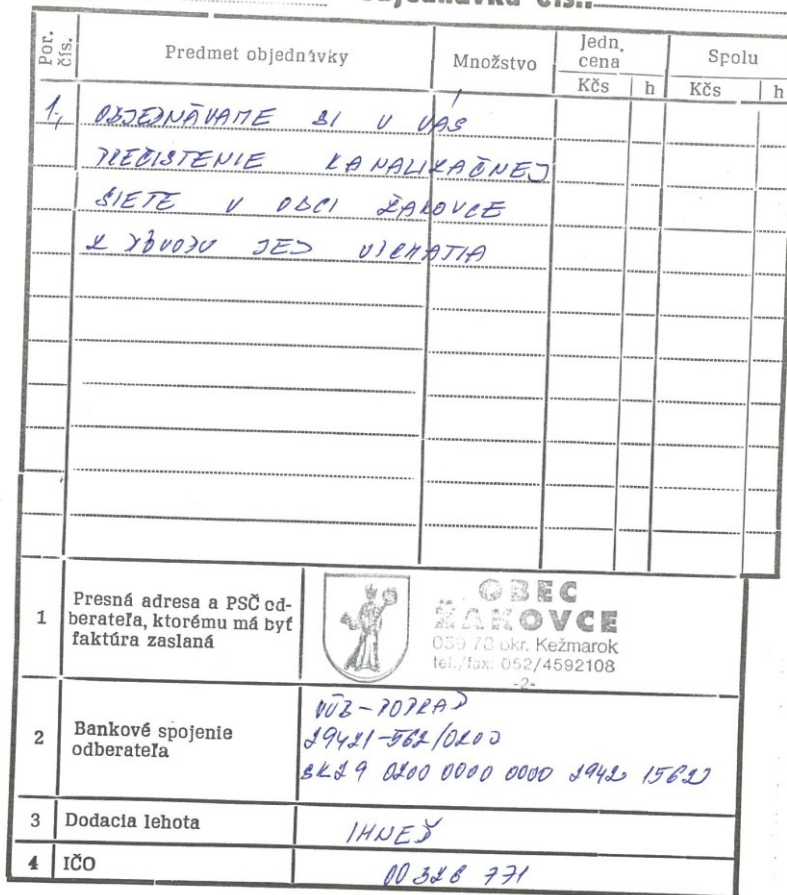 Por. čís. Predmet objednávky Množstvo Jedn. cena Spolu
Kčs h Kčs h
1., OBJEDNÁVAME SI U VÁS
PREČISTENIE KANALIZAČNEJ
SIETE V OBCI ŽAKOVCE
Z DÔVODU JEJ UPCHATIA
1 Presná adresa a PSČ od-
berateľa, ktorému má byť
faktúra zaslaná
OBEC
ŽAKOVCE
059 73 okr. Kežmarok
tel./fax: 052/4592108
-2-
2 Bankové spojenie
odberateľa
VÚB - POPRAD
0200 0000 0000
3 Dodacia lehota IHNEĎ
4 IČO 00326 771